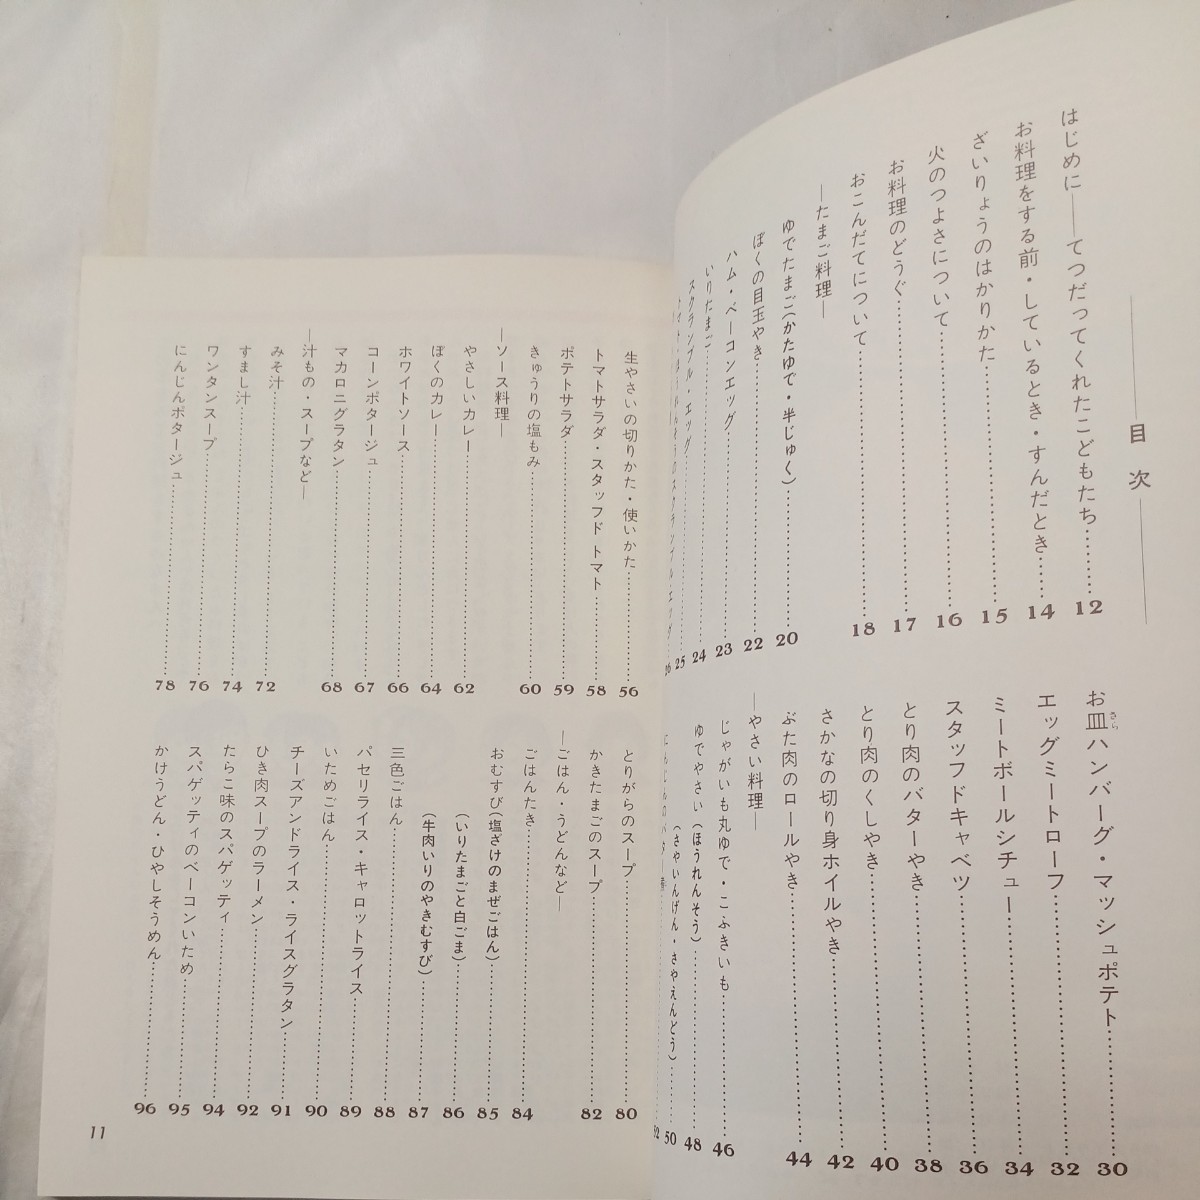 目次
はじめに——てつだってくれたこどもたち……12
お料理をする前・しているとき・すんだとき……14
ざいりょうのはかりかた……15
火のつよさについて……16
お料理のどうぐ……17
おこんだてについて……18
—たまご料理—
ゆでたまご(かたゆで・半じゅく)……20
ぼくの目玉やき……22
ハム・ベーコンエッグ……23
いりたまご……24
スクランブル・エッグ……25
お皿ハンバーグ・マッシュポテト……30
さら
エッグミートローフ……32
ミートボールシチュー……34
スタッフドキャベツ……36
とり肉のバターやき……38
とり肉のくしやき……40
さかなの切り身ホイルやき……42
ぶた肉のロールやき……44
—やさい料理—
じゃがいも丸ゆで・こふきいも……46
ゆでやさい(ほうれんそう)……48
(さやいんげん・さやえんどう)……50
生やさいの切りかた・使いかた……56
トマトサラダ・スタッフド トマト……58
ポテトサラダ……59
きゅうりの塩もみ……60
—ソース料理—
やさしいカレー……62
ぼくのカレー……64
ホワイトソース……66
コーンポタージュ……67
マカロニグラタン……68
—汁もの・スープなど—
みそ汁……72
すまし汁……74
ワンタンスープ……76
にんじんポタージュ……78
とりがらのスープ……80
かきたまごのスープ……82
—ごはん・うどんなど—
ごはんたき……84
おむすび(塩ざけのまぜごはん)……85
(いりたまごと白ごま)……86
(牛肉いりのやきむすび)……87
三色ごはん……88
パセリライス・キャロットライス……89
いためごはん……90
チーズアンドライス・ライスグラタン……91
ひき肉スープのラーメン……92
たらこ味のスパゲッティ……94
スパゲッティのベーコンいため……95
かけうどん・ひやしそうめん……96
11